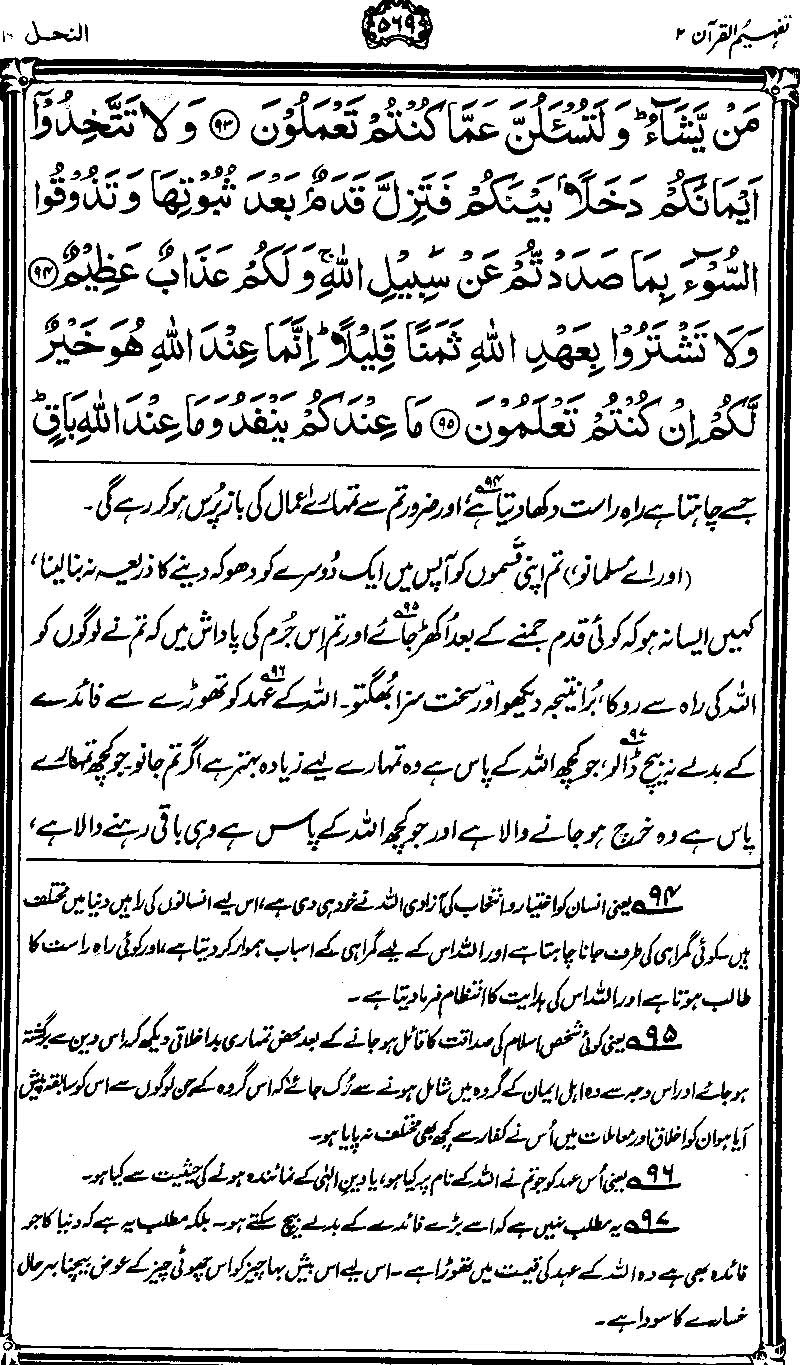 تفہیم القرآن ۲
۵۶۹
النحل ۱۶
مَنْ يَّشَآءُ ؕ وَلَتُسْـَٔلُنَّ عَمَّا كُنْتُمْ تَعْمَلُوْنَ ﴿۹۳﴾ وَلَا تَتَّخِذُوْۤا
اَيْمَانَكُمْ دَخَلًۢا بَيْنَكُمْ فَتَزِلَّ قَدَمٌۢ بَعْدَ ثُبُوْتِهَا وَتَذُوْقُوا
السُّوْٓءَ بِمَا صَدَدْتُّمْ عَنْ سَبِيْلِ اللّٰهِ ۚ وَلَكُمْ عَذَابٌ عَظِيْمٌ ﴿۹۴﴾
وَلَا تَشْتَرُوْا بِعَهْدِ اللّٰهِ ثَمَنًا قَلِيْلًا ؕ اِنَّمَا عِنْدَ اللّٰهِ هُوَ خَيْرٌ
لَّكُمْ اِنْ كُنْتُمْ تَعْلَمُوْنَ ﴿۹۵﴾ مَا عِنْدَكُمْ يَنْفَدُ وَمَا عِنْدَ اللّٰهِ بَاقٍ ؕ
جسے چاہتا ہے راہِ راست دکھا دیتا ہے،۹۴ اور ضرور تم سے تمہارے اعمال کی باز پُرس ہو کر رہے گی۔
(اور اے مسلمانو،) تم اپنی قسموں کو آپس میں ایک دُوسرے کو دھوکہ دینے کا ذریعہ نہ بنا لینا،
کہیں ایسا نہ ہو کہ کوئی قدم جمنے کے بعد اُکھڑ جائے۹۵ اور تم اِس جُرم کی پاداش میں کہ تم نے لوگوں کو
اللہ کی راہ سے روکا، بُرا نتیجہ دیکھو اور سخت سزا بُھگتو۔ اللہ کے عہد۹۶ کو تھوڑے سے فائدے
کے بدلے نہ بیچ ڈالو،۹۷ جو کچھ اللہ کے پاس ہے وہ تمہارے لیے زیادہ بہتر ہے اگر تم جانو۔ جو کچھ تمہارے
پاس ہے وہ خرچ ہو جانے والا ہے اور جو کچھ اللہ کے پاس ہے وہی باقی رہنے والا ہے،
۹۴ یعنی انسان کو اختیار و انتخاب کی آزادی اللہ نے خود ہی دی ہے، اس لیے انسانوں کی راہیں دنیا میں مختلف
ہیں۔ کوئی گمراہی کی طرف جانا چاہتا ہے اور اللہ اس کے لیے گمراہی کے اسباب ہموار کر دیتا ہے، اور کوئی راہِ راست کا
طالب ہوتا ہے اور اللہ اس کی ہدایت کا انتظام فرما دیتا ہے۔
۹۵ یعنی کوئی شخص اسلام کی صداقت کا قائل ہو جانے کے بعد محض تمہاری بد اخلاقی دیکھ کر اس دین سے برگشتہ
ہو جائے اور اس وجہ سے وہ اہل ایمان کے گروہ میں شامل ہونے سے رُک جائے کہ اس گروہ کے جن لوگوں سے اس کو سابقہ پیش
آیا ہو ان کو اخلاق اور معاملات میں اُس نے کفار سے کچھ بھی مختلف نہ پایا ہو۔
۹۶ یعنی اُس عہد کو جو تم نے اللہ کے نام پر کیا ہو، یا دینِ الٰہی کے نمائندہ ہونے کی حیثیت سے کیا ہو۔
۹۷ یہ مطلب نہیں ہے کہ اسے بڑے فائدے کے بدلے بیچ سکتے ہو۔ بلکہ مطلب یہ ہے کہ دنیا کا جو
فائدہ بھی ہے وہ اللہ کے عہد کی قیمت میں تھوڑا ہے۔ اس لیے اس بیش بہا چیز کو اس چھوٹی چیز کے عوض بیچنا بہرحال
خسارے کا سودا ہے۔